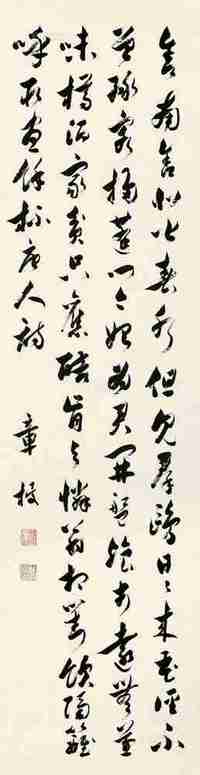 舍南舍北皆春水但見羣鷗日々來花徑不
曾緣客掃蓬門今始為君開盤飧市遠無兼
味樽酒家貧只舊醅肯與鄰翁相對飲隔籬
呼取盡餘杯唐人詩
章梫